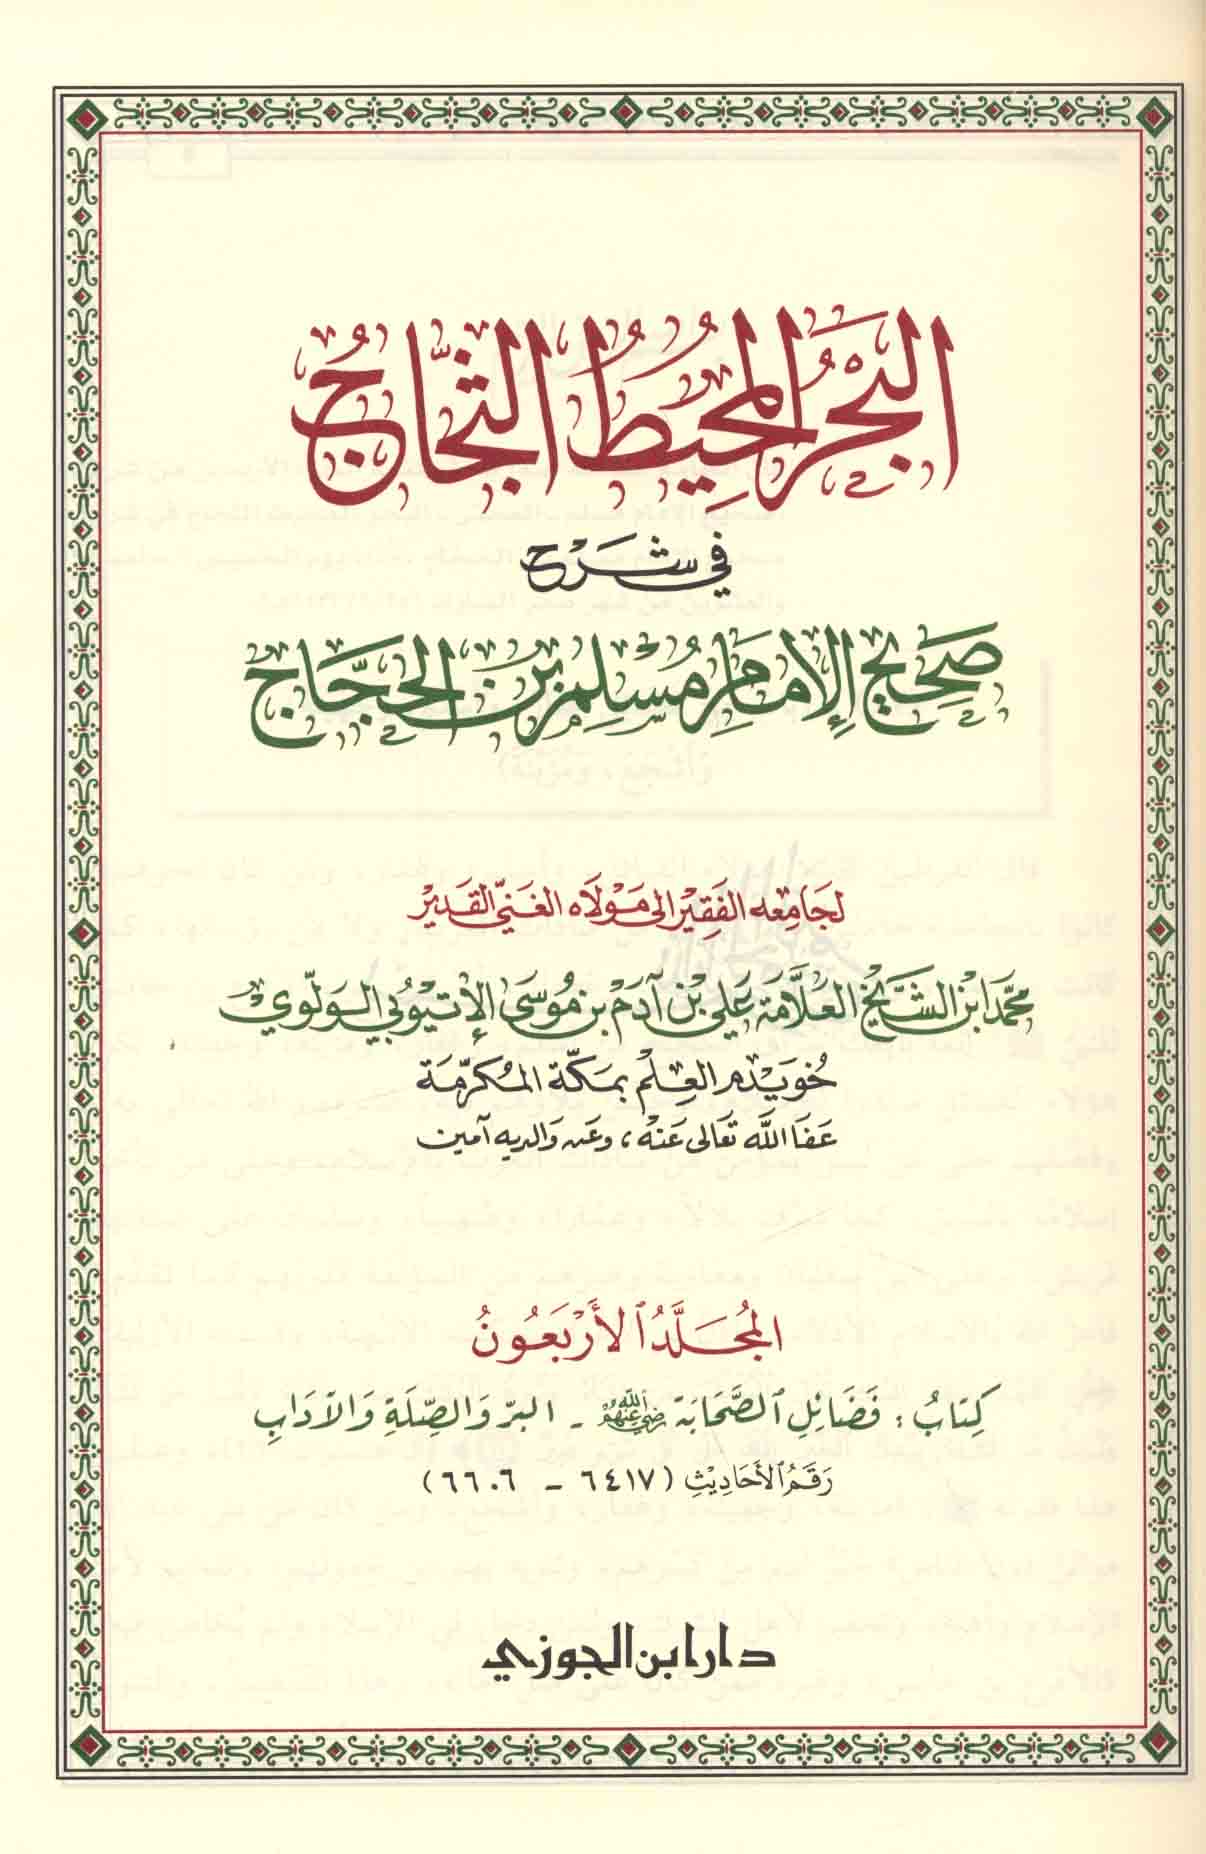 البَحْرُ المُحِيطُ الثَّجَّاجُ
في شرح
صَحِيحِ الإِمَامِ مُسْلِم بْنِ الحَجَّاجِ
لجَامِعِهِ الفَقِيرِ إلى مَوْلَاه الغَنِيِّ القَدِيرِ
محمّد ابْن الشَّيْخ العَلَّامَة عَلِيّ بْن آدَم بن مُوسَى الإِتْيُوبي الوَلَّوِي
خُوَيْدِم العِلْم بِمَكَّة المُكَرَّمَة
عَفَا اللَّه تَعَالَى عَنْهُ، وعَن والديه آمين
المُجَلَّدُ الأَرْبَعُونُ
كِتَابُ : فَضَائِلِ الصَّحَابَة رضي الله عنهم - البرِّ وَالصِّلَةِ وَالآدَابِ
رَقَمُ الأَحَادِيثِ (٦٤١٧ - ٦٦٠٦)
دار ابن الجوزي